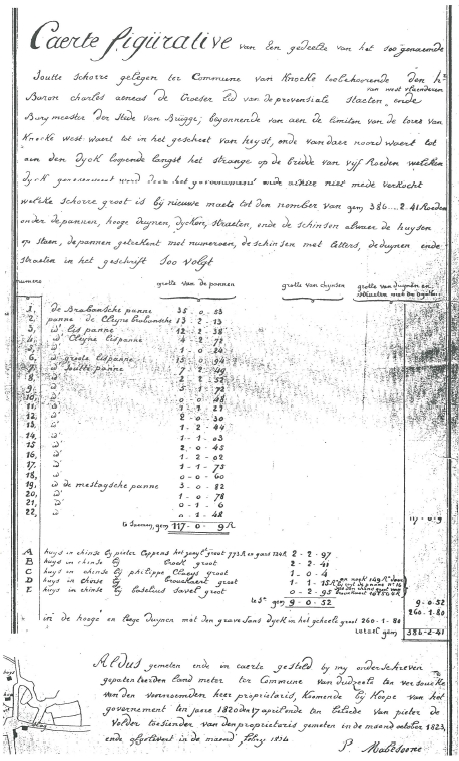 Caerte figürative van een gedeelte van het soo genaemde
Soutte schorre gelegen ter Commune van Knocke toebehoorende den h^r
van west vlaenderen
Baron charles aeneas de Croeser Lid van de provensiale staeten, ende
Burgmeester der Stede van Brugge; begonnende van aen de limiten van de
Knocke west waert tot in het gescheet van heyst, ende van daer noord waert tot
aen den Dyck loopende langst het strange op de bridde van vyf Roeden welcken
Dyck mede verkocht
welcke schorre groot is bij nieuwe maete tot den nomber van gem 386...2.41 Roeden
onder de pannen, hooge duynen, dycken, straeten, ende de schinsen alwaer de huysen
op staen, de pannen geteekent met numeroen, de schinsen met letters, de duynen ende
straeten in het geschrift soo volgt
numero grotte van de pannen grotte van chynsen grotte van duynen en
1, de Brabansche panne 35 - 0 - 53
2, panne de Cleyne brabansche 13 - 2 - 13
3, id Lis panne 12 - 2 - 38
4, id Cleyne Lispanne 4 - 2 - 72
5, id 1 - 0 - 24
6, id groote Lispanne 13 - 0 - 94
7, id Soutte panne 7 - 2 - 49
8, id 2 - 2 - 52
9, id 5 - 1 - 72
10, id 0 - 0 - 48
11, id 1 - 1 - 21
12, id 2 - 0 - 30
13, id 1 - 2 - 44
14, id 1 - 1 - 03
15, id 2 - 0 - 45
16, id 1 - 2 - 02
17, id 1 - 1 - 75
18, id 0 - 0 - 60
19, id de mestaysche panne 3 - 0 - 82
20, id 1 - 0 - 78
21, id 0 - 1 - 6
22, id 0 - 1 - 48
te saemen, gem 117 - 0 - 9 R 117-0-9
A huys in chinse bij pieter Coppens groot 2 - 2 - 97
B huys in chinse bij groot 2 - 2 - 41
C huys in chinse bij philippe Claeys groot 1 - 0 - 4
D huys in chinse bij groot 1 - 1 - 15 R
E huys in chinse bij baselius savel groot 0 - 2 - 95
9 - 0 - 52 9-0-52
in de hooge en lage duynen met den grave Jans dyck in het geheele groot 260 - 1 - 80 260-1-80
totael gem 386-2-41
Aldus gemeten ende in caerte gesteld by my onderschreven
gepatenteerden land meter ter Commune van dudzeele ten versoucke
van den voornoemden heer proprietaris, koomende bij koope van het
governement ten jare 1820 den 17 april ende ten bylende van pieter de
Volder toesiender van den proprietaris gemeten in de maend october 1823,
ende in de maend febry 1824
P. Malesoone